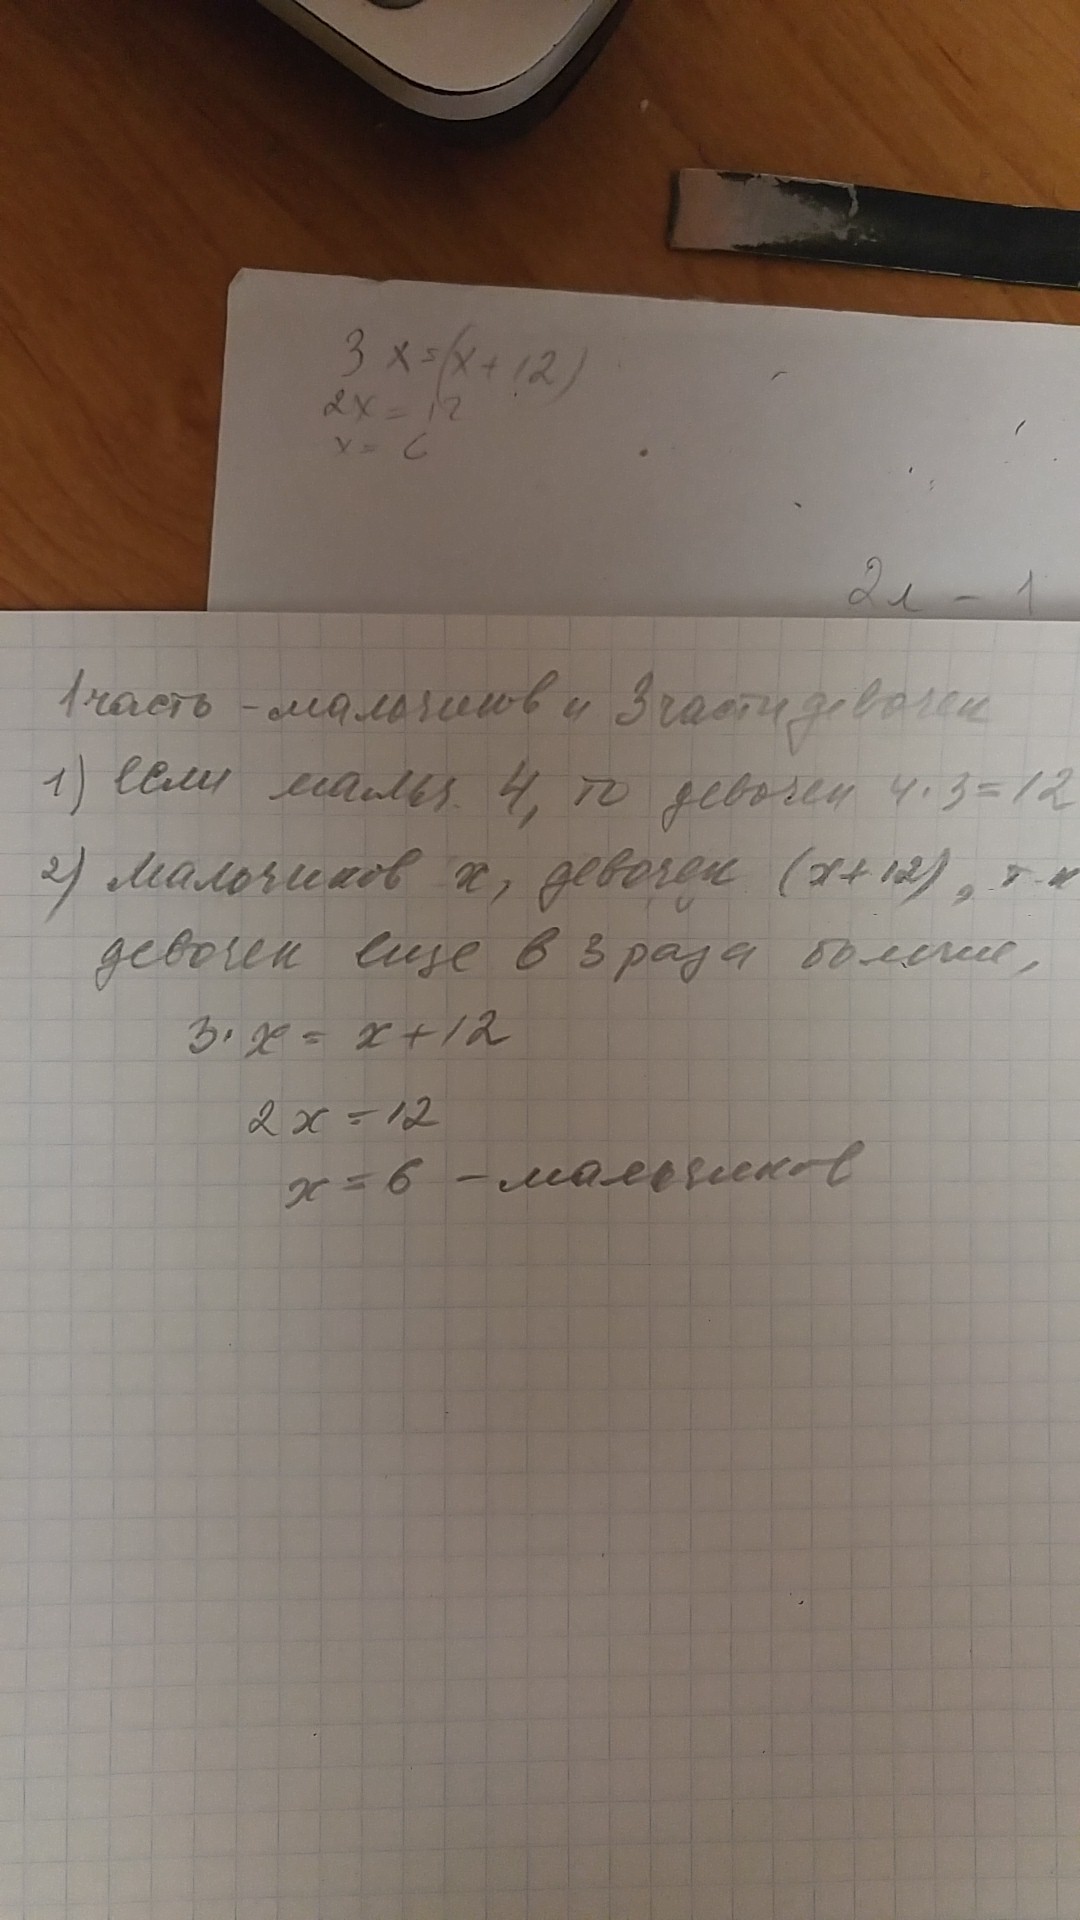 3 x = (x + 12)
2x = 12
x = 6
2л - 1
1 часть - мальчиков и 3 части девочек
1) если мальч. 4, то девочек 4·3=12
2) Мальчиков x, девочек (x+12), т-к
девочек еще в 3 раза больше,
3·x = x+12
2x = 12
x = 6 - мальчиков